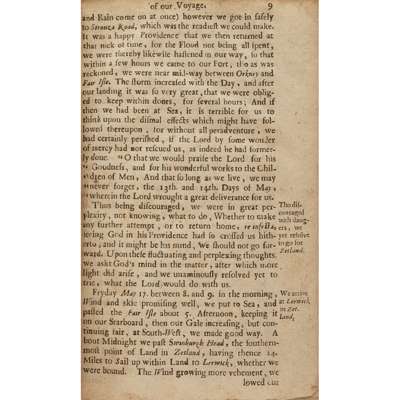 of our Voyage. 9
and Rain come on at once) however we got in safely
to Stronza Road, which was the readiest we could make.
It was a happy Providence that we then returned at
that nick of time, for the Flood not being all spent,
we were thereby likewise hastened in our way, so that
within a few hours we came to our Port, tho as was
reckoned, we were near mid-way between Orkney and
Fair Isle. The storm increased with the Day, and after
our landing it was so very great, that we were oblig-
ed to keep within doors, for several hours; And if
then we had been at Sea, it is terrible for us to
think upon the dismal effects which might have fol-
lowed thereupon, for without all peradventure, we
had certainly perished, if the Lord by some wonder
of mercy had not rescued us, as indeed he had former-
ly done. "O that we would praise the Lord for his
" Goodness, and for his wonderful works to the Chil-
" dren of Men, And that so long as we live, we may
" never forget, the 13th. and 14th. Days of May,
" wherein the Lord wrought a great deliverance for us.
Thus being discouraged, we were in great per-
plexity, not knowing, what to do, Whether to make
any further attempt, or to return home,
seeing God in his Providence had so crossed us hith-
erto, and it might be his mind, We should not go for-
ward. Upon these fluctuating and perplexing thoughts
we askt God's mind in the matter, after which more
light did arise, and we unanimously resolved yet to
trie, what the Lord would do with us.
Fryday May 17. between 8. and 9. in the morning,
Wind and skie promising well, we put to Sea, and
passed the Fair Isle about 5. Afternoon, keeping it
on our Starboard, then our Gale increasing, but con-
tinuing fair, at South-West, we made good way. A
bout Midnight we past Swinburgh Head, the southern-
most point of Land in Zetland, having thence 14.
Miles to Sail up within Land to Lerwick, whether we
were bound. The Wind growing more vehement, we
lowed our
Thus dis-
couraged
with dang-
ers, we
yet resolve
to go for
Zetland.
We arrive
at Lerwick,
in Zet-
land,